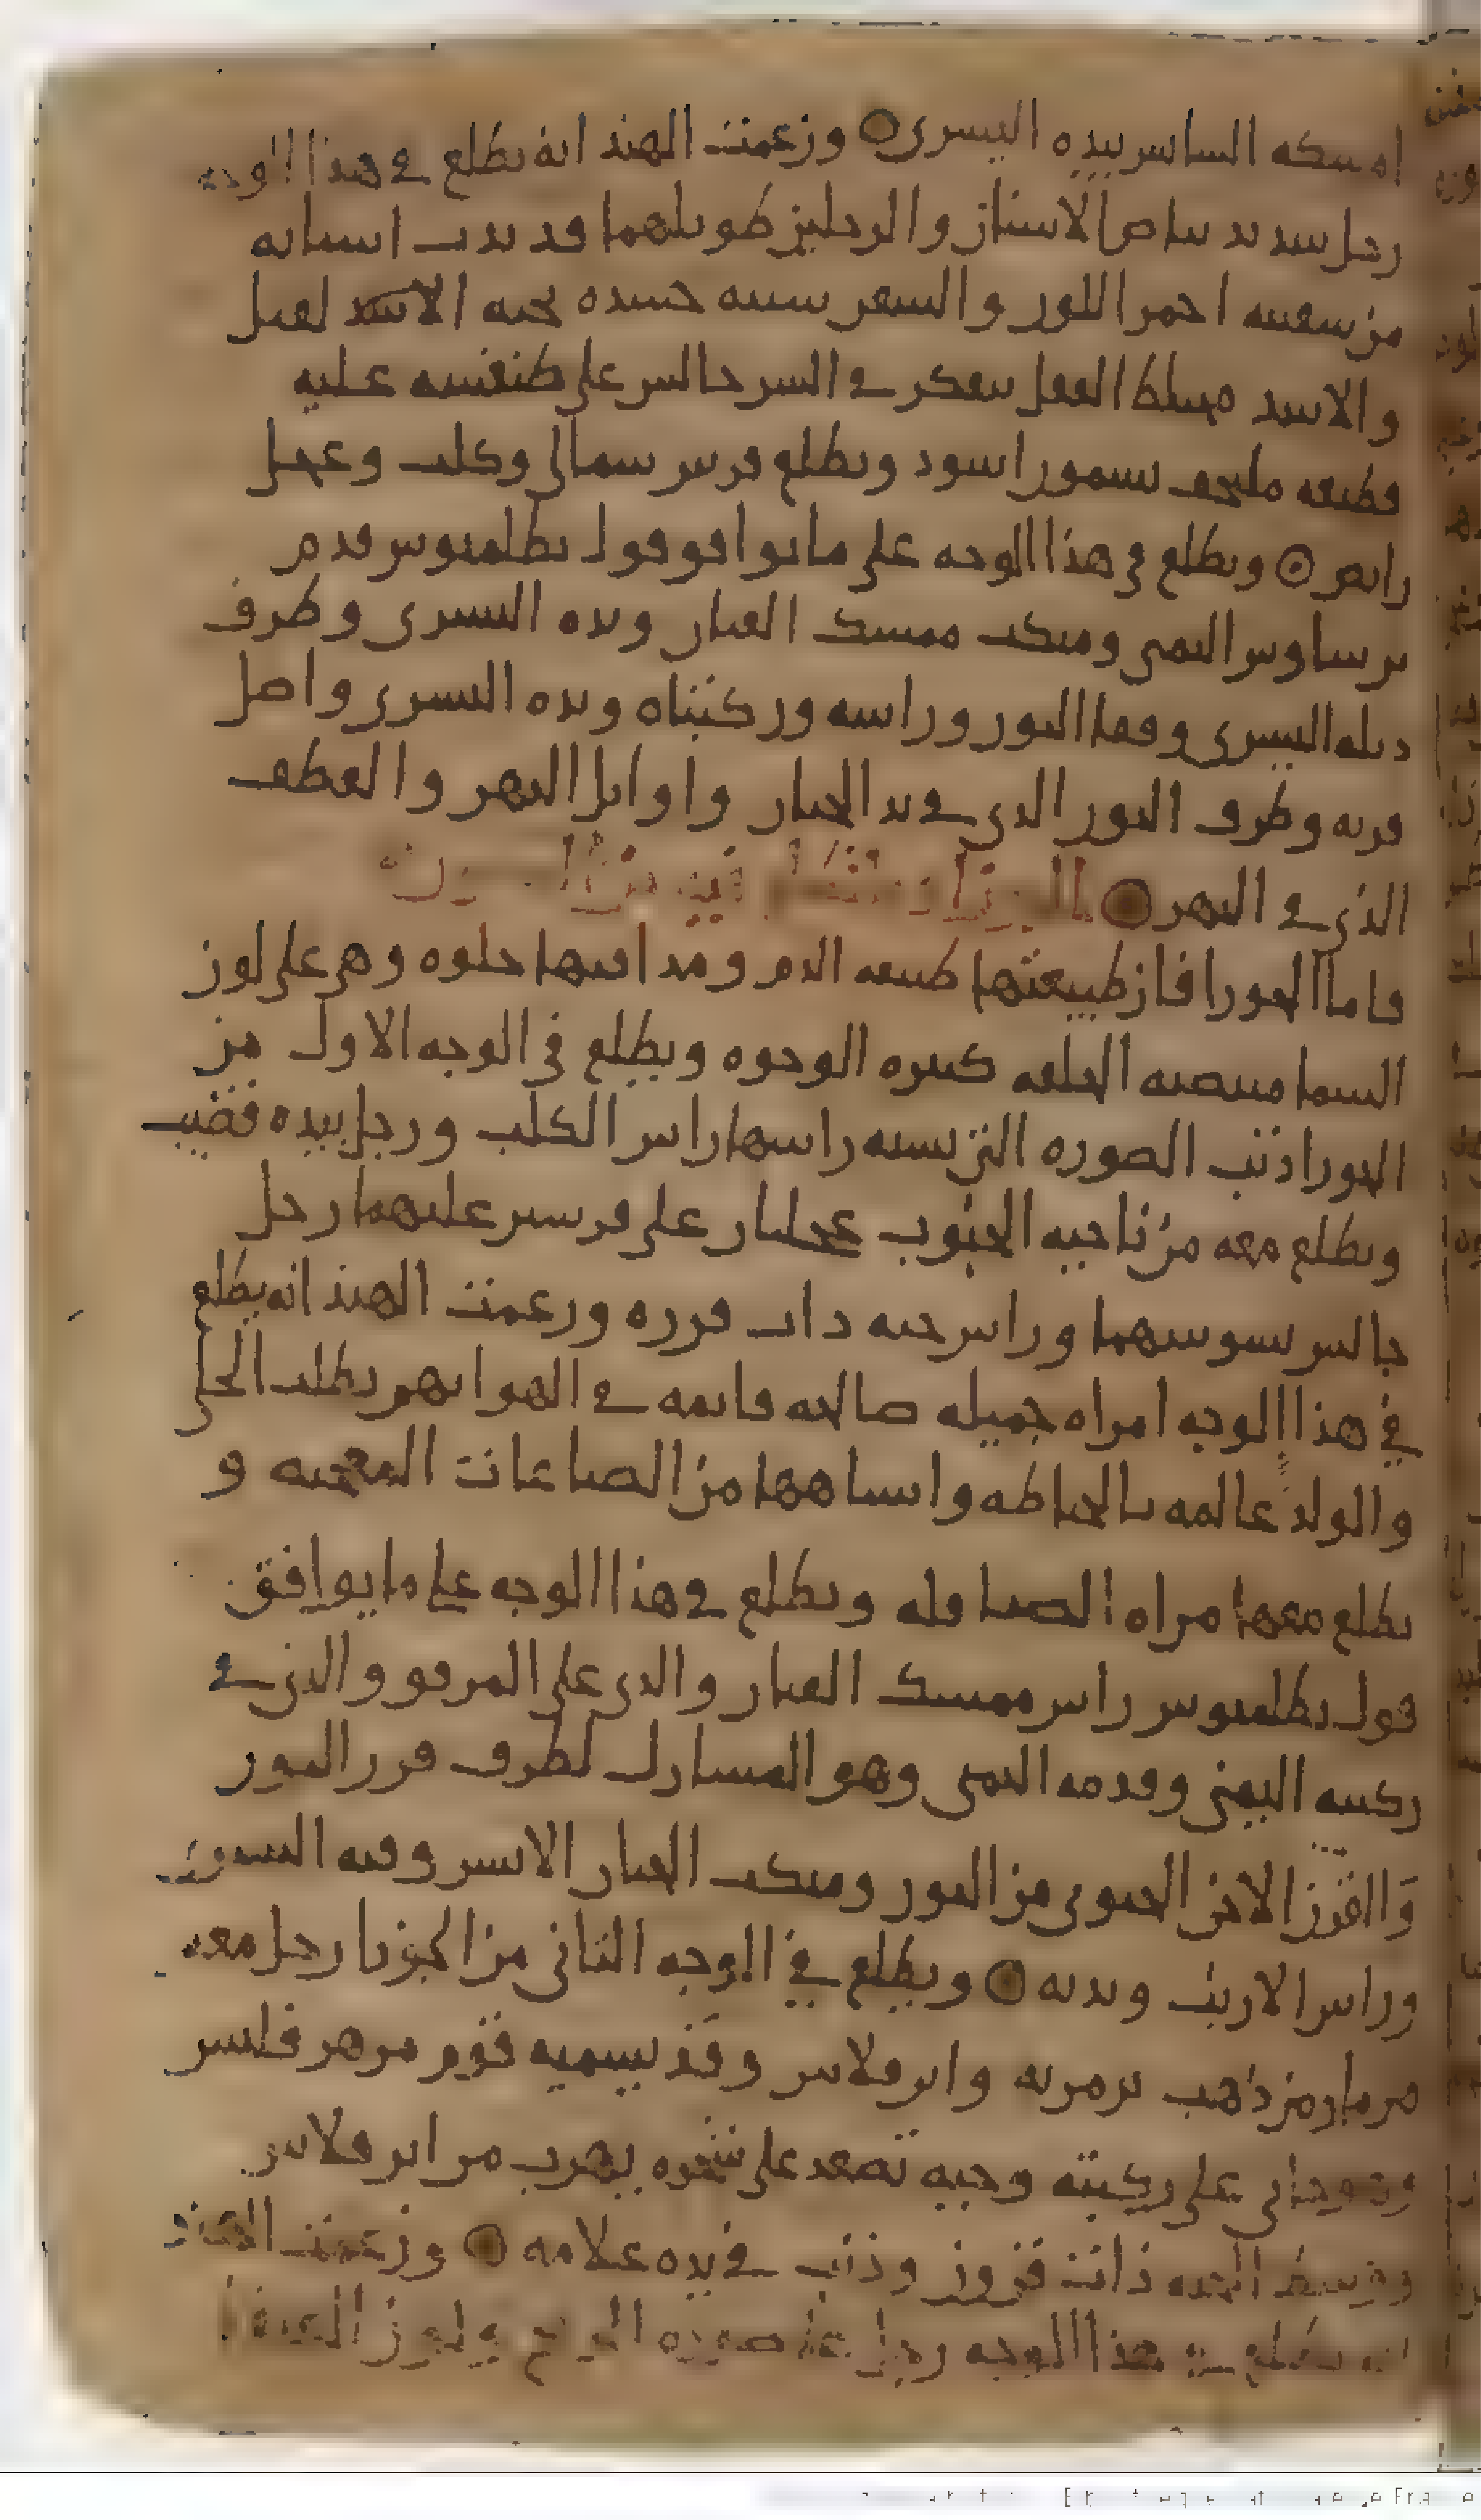 امسكه الساس بيده اليسرى ۝ وزعمت الهند انه يطلع في هذا الوجه
رجل شديد بياض الاسنان والرجلين طويلهما قد بدت اسنانه
من شفتيه احمر اللون والشعر يشبه جسده جثه الاسد الفيل
والاسد مسلط العقل يتفكر في الشر جالس على طنفسه عليه
قطيفه ملتحف بسمور اسود ويطلع فرس شمالي وكلب وعجل
رابض ۝ ويطلع في هذا الوجه على ما يوافق قول بطلميوس قدم
برساوس اليمنى ومنكب ممسك العنان ويده اليسرى وطرف
ذيله اليسرى وفقا الثور وراسه وركبتاه ويده اليسرى واصل
قرنه وطرف الثور الذي في يد الجبار واوائل النهر والعطف
الذي في النهر ۝
فاما الجوزا فان طبيعتها طبيعه الدم ومذاقتها حلوه وهي على لون
السما منتصبه الخلقه كثيره الوجوه ويطلع في الوجه الاول من
الجوزا ذنب الصوره التي يشبه راسها راس الكلب ورجل بيده قضيب
ويطلع معه من ناحيه الجنوب عجلتان على فرسين عليهما رجل
جالس يسوسهما وراس حيه ذات قرن وزعمت الهند انه يطلع
في هذا الوجه امراه جميله صالحه قائمه في الهوا تطلب الحلي
والولد عالمه بالخياطه واشباهها من الصناعات المعجبه و
يطلع معها مراه الصياقله ويطلع في هذا الوجه على ما يوافق
قول بطلميوس راس ممسك العنان والذي على المرفق والذي في
ركبته اليمنى وقدمه اليمنى وهو المشارك لطرف قرن الثور
والقرن الاخر الجنوبي من الثور ومنكب الجبار الايسر وفيه السيور
وراس الارنب وبدنه ۝ ويطلع في الوجه الثاني من الجوزا رجل معه
مزمار من ذهب يزمر به وابرقلاس وقد يسميه قوم من هرقلس
وهو جاثي على ركبته وحيه تصعد على شجره يهرب من ابرقلاس
ووسط الحيه ذات قرون وذئب في يده علامه ۝ وزعمت الهند
انه يطلع في هذا الوجه رجل على صوره الزنج